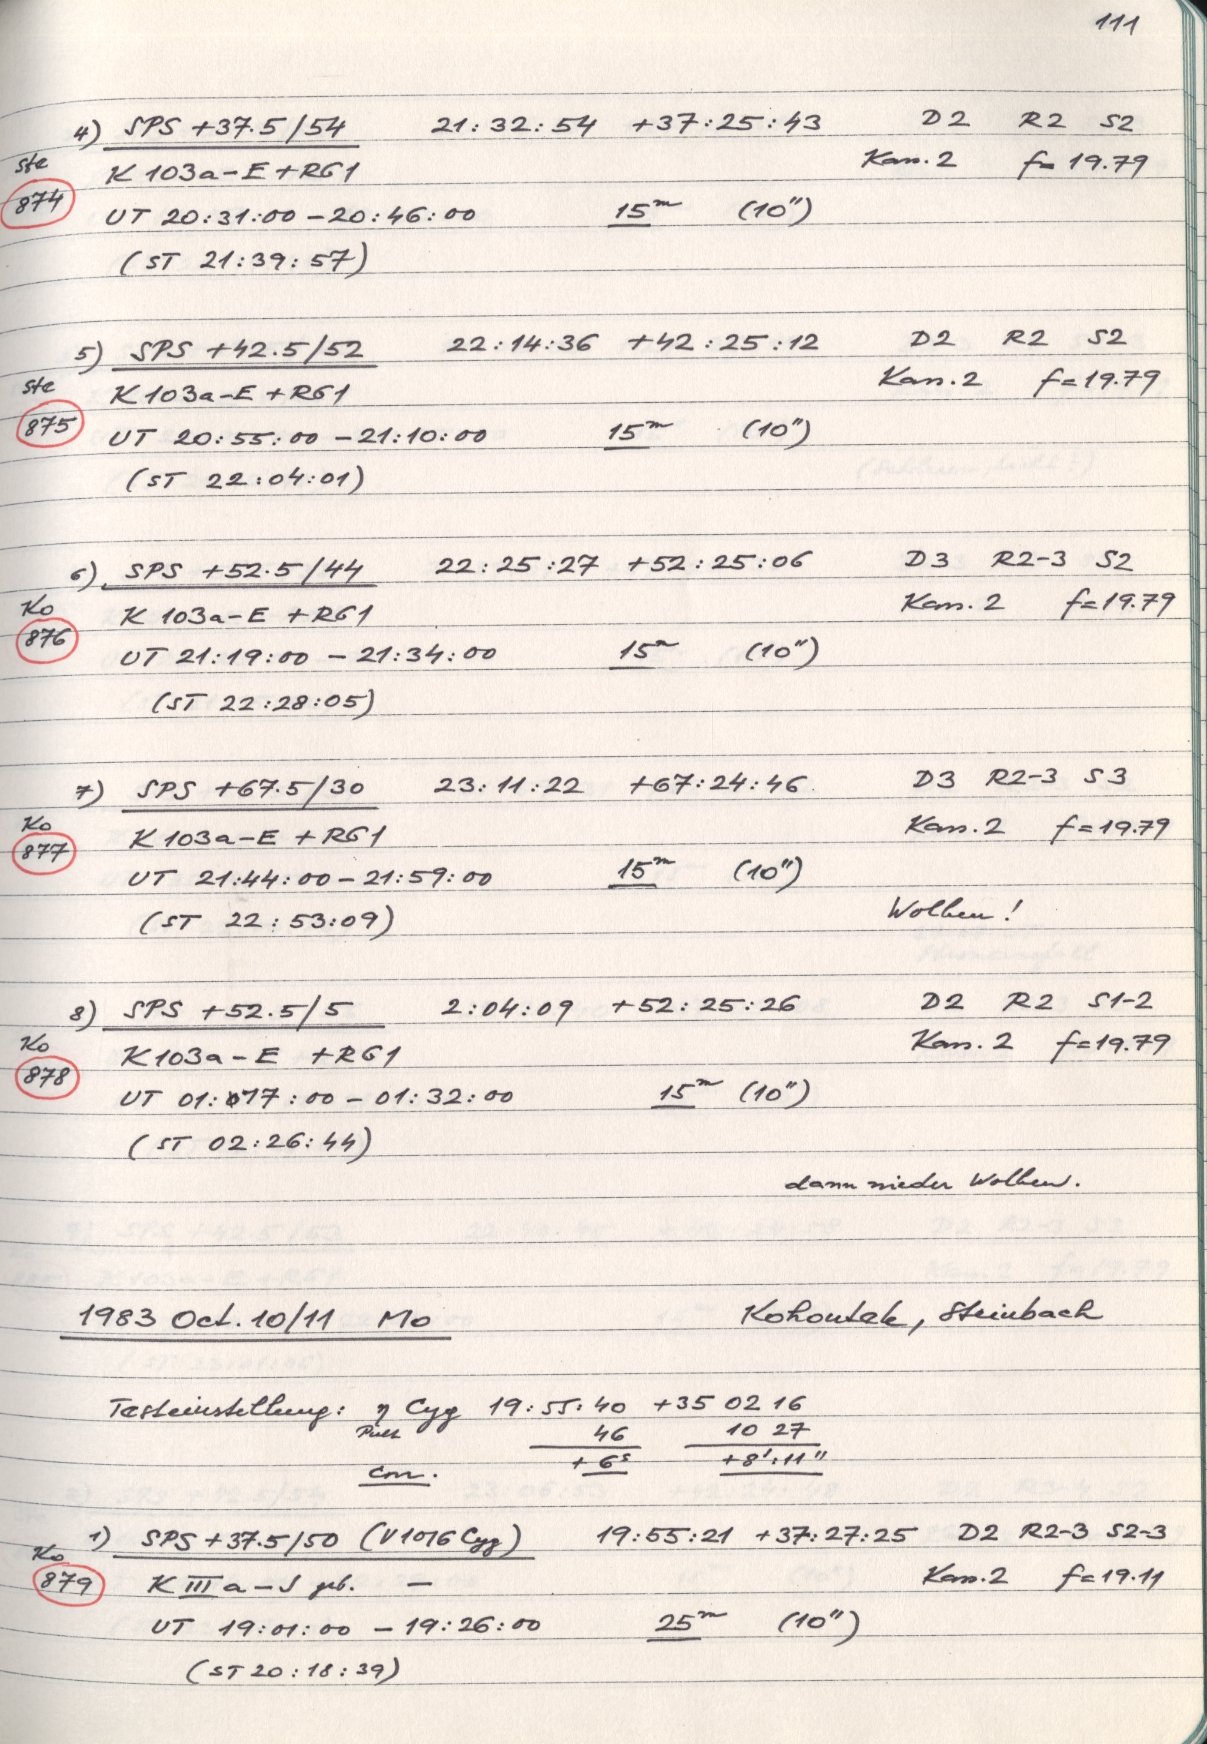 111
4) SPS +37.5/54 21:32:54 +37:25:43 D2 R2 S2
Ste K 103a-E + RG1 Kass. 2 f= 19.79
874 UT 20:31:00 - 20:46:00 15m (10")
(ST 21:39:57)
5) SPS +42.5/52 22:14:36 +42:25:12 D2 R2 S2
Ste K 103a-E + RG1 Kass. 2 f=19.79
875 UT 20:55:00 - 21:10:00 15m (10")
(ST 22:04:01)
6) SPS +52.5/44 22:25:27 +52:25:06 D3 R2-3 S2
Ko K 103a-E + RG1 Kass. 2 f=19.79
876 UT 21:19:00 - 21:34:00 15m (10")
(ST 22:28:05)
7) SPS +67.5/30 23:11:22 +67:24:46 D3 R2-3 S3
Ko K 103a-E + RG1 Kass. 2 f=19.79
877 UT 21:44:00 - 21:59:00 15m (10")
(ST 22:53:09) Wolken!
8) SPS +52.5/5 2:04:09 +52:25:26 D2 R2 S1-2
Ko K 103a-E + RG1 Kass. 2 f=19.79
878 UT 01:17:00 - 01:32:00 15m (10")
(ST 02:26:44)
dann wieder Wolken.
1983 Oct. 10/11 Mo Kohoutek, Steinbach
Testeinstellung: η Cyg 19:55:40 +35 02 16
Pult 46 10 27
corr. +6s +8':11"
1) SPS +37.5/50 (V1016 Cyg) 19:55:21 +37:27:25 D2 R2-3 S2-3
Ko K III a-J geb. — Kass. 2 f=19.11
879 UT 19:01:00 - 19:26:00 25m (10")
(ST 20:18:39)